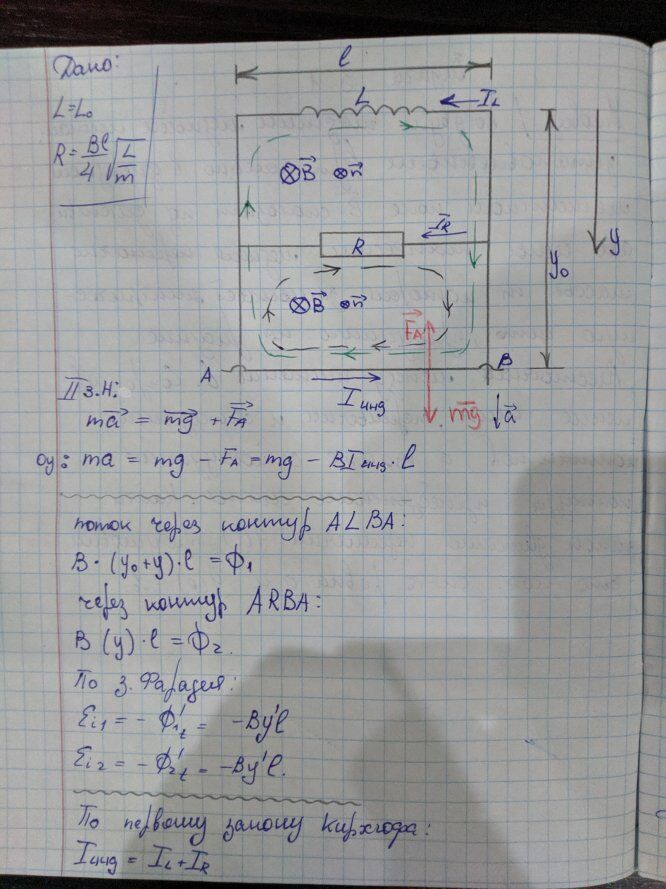 Дано:
L=L₀
R = Bl/4 √(L/m)
l
L
I_L
⊗B⃗ ⊗n⃗
R
I_R
y₀
y
⊗B⃗ ⊗n⃗
F⃗_A
A
B
I_инд
mg⃗
a⃗
II з.Н:
ma⃗ = mg⃗ + F⃗_A
oy: ma = mg - F_A = mg - BI_инд·l
поток через контур ALBA:
B·(y₀+y)·l = Ф₁
через контур ARBA:
B(y)·l = Ф₂.
По з. Фарадея:
Ɛi₁ = - Ф₁'t = -By'l
Ɛi₂ = - Ф₂'t = -By'l.
По первому закону Кирхгофа:
I_инд = I_L + I_R